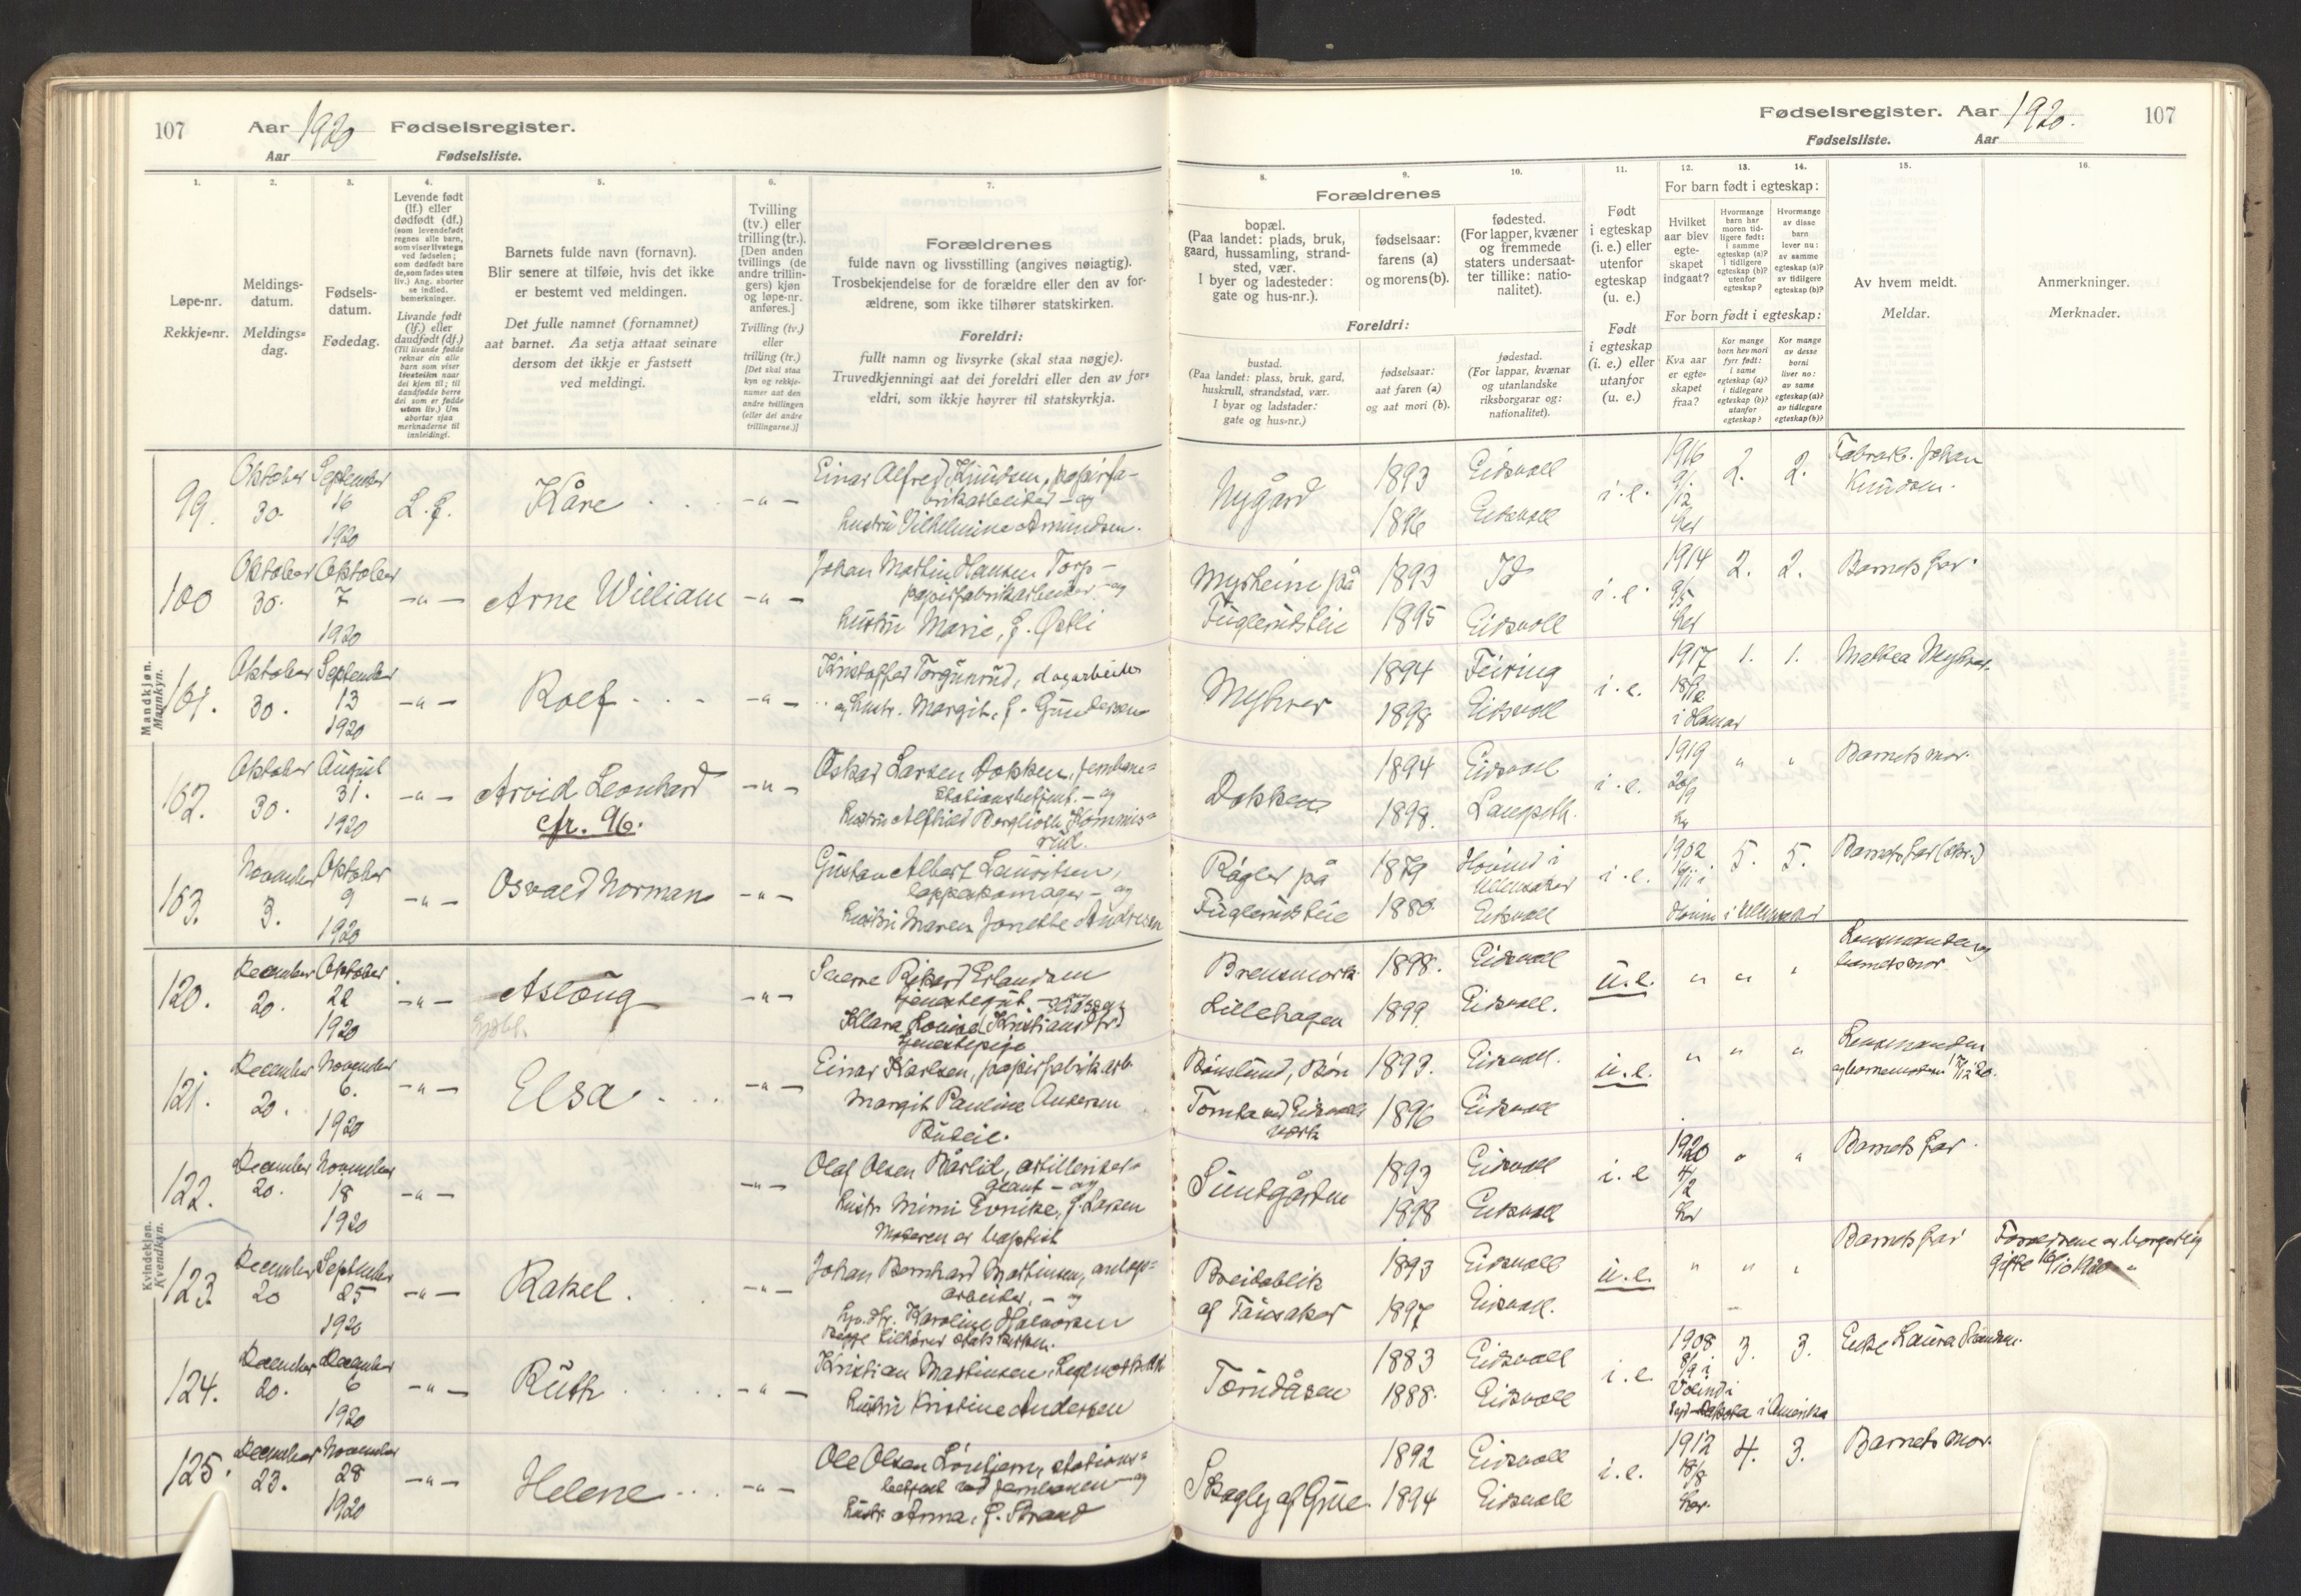 107 Aar 1920 Fødselsregister.
Aar Fødselsliste.
1. 2. 3. 4. 5. 6. 7.
Løpe-nr.
Rekkje=nr.
Meldings-
datum.
Meldings=
dag.
Fødsels-
datum.
Fødedag.
Levende født
(lf.) eller
dødfødt (df.)
(som levendefødt
regnes alle barn,
som viser livstegn
ved fødselen;
som dødfødt bare
de, som fødes uten
liv.) Ang. aborter
se indled.
bemerkninger.
Livande født
(lf.) eller
daudfødt (df.)
(Til livande fødde
reknar ein alle
barn som viser
livsteikn naar
dei kjem til; til
daudfødde berre
dei som er fødde
utan liv.) Um
abortar sjaa
merknaderne til
innleidingi.
Barnets fulde navn (fornavn).
Blir senere at tilføie, hvis det ikke
er bestemt ved meldingen.
Det fulle namnet (fornamnet)
aat barnet. Aa setja attaat seinare
dersom det ikkje er fastsett
ved meldingi.
Tvilling
(tv.) eller
trilling (tr.).
[Den anden
tvillings (de
andre trillin-
gers) kjøn
og løpe-nr.
anføres.]
Tvilling (tv.)
eller
trilling (tr.)
[Det skal staa
kyn og rekkje-
numer aat den
andre tvillingen
(eller dei andre
trillingarne.)]
Forældrenes
fulde navn og livsstilling (angives nøiagtig).
Trosbekjendelse for de forældre eller den av for-
ældrene, som ikke tilhører statskirken.
Foreldri:
fullt namn og livsyrke (skal staa nøgje).
Truvedkjenningi aat dei foreldri eller den av for=
eldri, som ikkje høyrer til statskyrkja.
Mandkjøn.
Mannkyn.
99. Oktober 30. September 16 1920 L.f. Kåre -"-
Einar Alfred Knudsen, papirfa-
brikarbeider - og
hustru Vilhelmine Amundsen.
100 Oktober 30. Oktober 7 1920 -"- Arne William -"-
Johan Martin Hansen Torp -
papirfabrikarbeider - og
hustru Marie, f. Østli
101. Oktober 30. September 13 1920 -"- Rolf -"-
Kristoffer Torgunrud, dagarbeider
og hustr. Margit, f. Gundersen
102. Oktober 30. August 31. 1920 -"- Arvid Leonhard -"-
cfr. 96.
Oskar Larsen Dokken, jernbane=
stationsbetjent. - og
hustru Alfhild Bergliot
103. November 3. Oktober 9 1920 -"- Osvald Norman -"-
Gustav Albert Lauritsen,
lappeskomager - og
hustru Maren Jonette Andresen
Kvindekjøn.
Kvendkyn.
120. December 20. Oktober 22 1920 -"- Aslaug -"-
Sverre Rikard Erlandsen
tjenestegut -
Klara Louise Kristiansdtr.
tjenestepige
121. December 20. November 6. 1920 -"- Elsa -"-
Einar Karlsen, papirfabrikarb.
Margit Pauline Andersen
122. December 20. November 18 1920 -"- -"-
Olaf Olsen Bårlid, artilleriser=
geant - og
hustr. Mimi f. Larsen
Moderen er baptist
123. December 20 September 25 1920 -"- Rakel. -"-
Johan Bernhard Martinsen, anlegs=
arbeider, - og
Karoline Halvorsen
Begge tilhører statskirken.
124. December 20. December 6 1920 -"- Ruth -"-
Kristian Martinsen
hustru Kristine Andersen
125. December 23. November 28 1920 -"- Helene -"-
Ole Olsen stations=
betjent ved jernbanen - og
hustr. Anna, f. Strand
Fødselsregister. Aar 1920. 107
Fødselsliste. Aar
8. 9. 10. 11. 12. 13. 14. 15. 16.
Forældrenes
bopæl.
(Paa landet: plads, bruk,
gaard, hussamling, strand-
sted, vær.
I byer og ladesteder:
gate og hus-nr.).
fødselsaar:
farens (a)
og morens (b).
fødested.
(For lapper, kvæner
og fremmede
staters undersaat-
ter tillike: natio-
nalitet).
Foreldri:
bustad.
(Paa landet: plass, bruk, gard,
huskrull, strandstad, vær.
I byar og ladstader:
gate og hus=nr.)
fødselsaar:
aat faren (a)
og aat mori (b).
fødestad.
(For lappar, kvænar
og utanlandske
riksborgarar og:
nationalitet).
Født
i egteskap
(i. e.) eller
utenfor
egteskap
(u. e.)
Født
i egteskap
(i. e.) eller
utanfor
(u. e.)
For barn født i egteskap:
Hvilket
aar blev
egte-
skapet
indgaat?
Hvormange
barn har
moren tid-
ligere født:
i samme
egteskap (a)?
i tidligere
egteskap (b)?
utenfor
egteskap?
Hvormange
av disse
barn
lever nu:
av samme
egteskap (a)?
av tidligere
egteskap (b)?
For born født i egteskap:
Kva aar
er egte=
skapet
fraa?
Kor mange
born hev mori
fyrr født:
i same
egteskap (a)?
i tidlegare
egteskap (b)?
utanfor
egteskap?
Kor mange
av desse
borni
liver no:
av same
egteskap (a)?
av tidlegare
egteskap (b)?
Av hvem meldt.
Meldar.
Anmerkninger.
Merknader.
Nygård 1893 Eidsvoll 1896 Eidsvoll i.e. 1916 9/12 her 2. 2. Fabrarb. Johan
Knudsen.
Myrheim på
Fuglerudseie 1893 Id 1895 Eidsvoll i.e. 1914 her 2. 2. Barnets far.
Myhrer 1894 Feiring 1898 Eidsvoll i.e. 1917 i Hamar 1. 1. Mathea Myhrer.
Dokken 1894 Eidsvoll 1898. Langseth. i.e. 1919 20/9 " " Barnets mor.
Rågler på
Fuglerudseie 1879 Hovind i
Ullensaker 1880 Eidsvoll i.e. 1902 Hovin i Ullensaker 5. 5. Barnets far
Brensmork
Lillehagen 1898. Eidsvoll 1899 Eidsvoll. u.e. " " " Lensmanden og
barnets mor
Bønslund, Bøn
Tomta ved Eidsvolds
værk 1893. Eidsvoll. 1896 Eidsvoll u.e. " " " Lensmanden
Sundgården 1893 Eidsvoll 1898 Eidsvoll i.e 1920 4/2 her " " Barnets far.
Breidablik
af Tærsaker 1893 Eidsvoll 1897 Eidsvoll. u.e. " " " Barnets far Forældrene er borgerlig
gifte
Tærudåsen 1883 Eidsvoll 1888. Eidsvoll i.e. 1908 i Amerika 3. 3. Enke Laura
Skogly af Grue. 1892 Eidsvoll 1894 Eidsvoll i.e. 1912 18/8 her. 4. 3. Barnets mor.